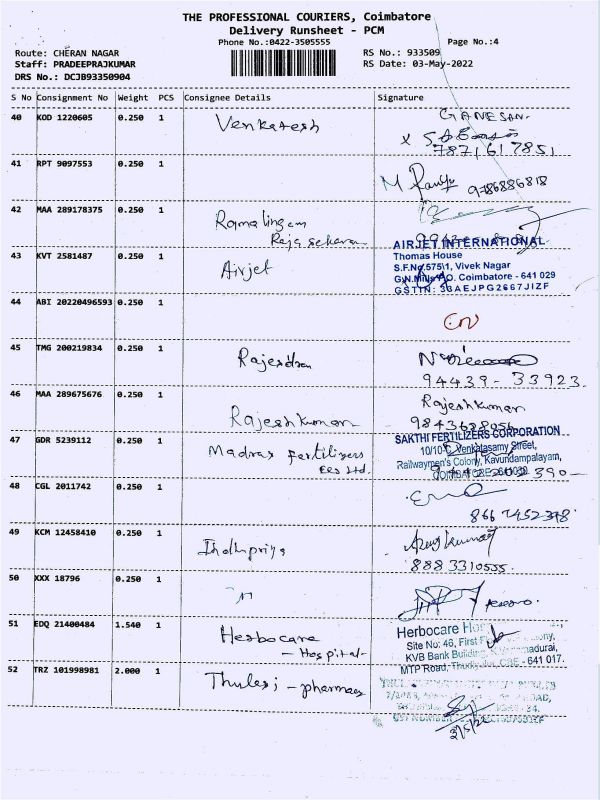 THE PROFESSIONAL COURIERS, Coimbatore
Delivery Runsheet - PCM
Phone No.:0422-3505555
Page No.:4
Route: CHERAN NAGAR
RS No.: 933509
Staff: PRADEEPRAJKUMAR
RS Date: 03-May-2022
DRS No.: DCJB93350904
S No Consignment No Weight PCS Consignee Details Signature
40 KOD 1220605 0.250 1 Venkatesh GANESAN
7871617851
41 RPT 9097553 0.250 1
9786886818
42 MAA 289178375 0.250 1 Ramalingam
Rajasekaran
43 KVT 2581487 0.250 1 Airjet
AIRJET INTERNATIONAL
Thomas House
S.F.No.575\1, Vivek Nagar
G.N.Mills P.O. Coimbatore - 641 029
GSTIN: 33AEJPG2667J1ZF
44 ABI 20220496593 0.250 1
45 TMG 200219834 0.250 1 Rajendran
94439-33923
46 MAA 289675676 0.250 1 Rajeshkumar Rajeshkumar
47 GDR 5239112 0.250 1 Madras Fertilizers
Ltd.
SAKTHI FERTILIZERS CORPORATION
10/10-C, Venkatasamy Street,
Railwaymen's Colony, Kavundampalayam,
48 CGL 2011742 0.250 1
49 KCM 12458410 0.250 1
8883310555
50 XXX 18796 0.250 1
51 EDQ 21400484 1.540 1 Herbocare
- Hospital
Herbocare
Site No: 46, First
KVB Bank Building
MTP Road, CBE - 641 017.
52 TRZ 101998981 2.000 1 Thulasi - pharmacy
3/5/22